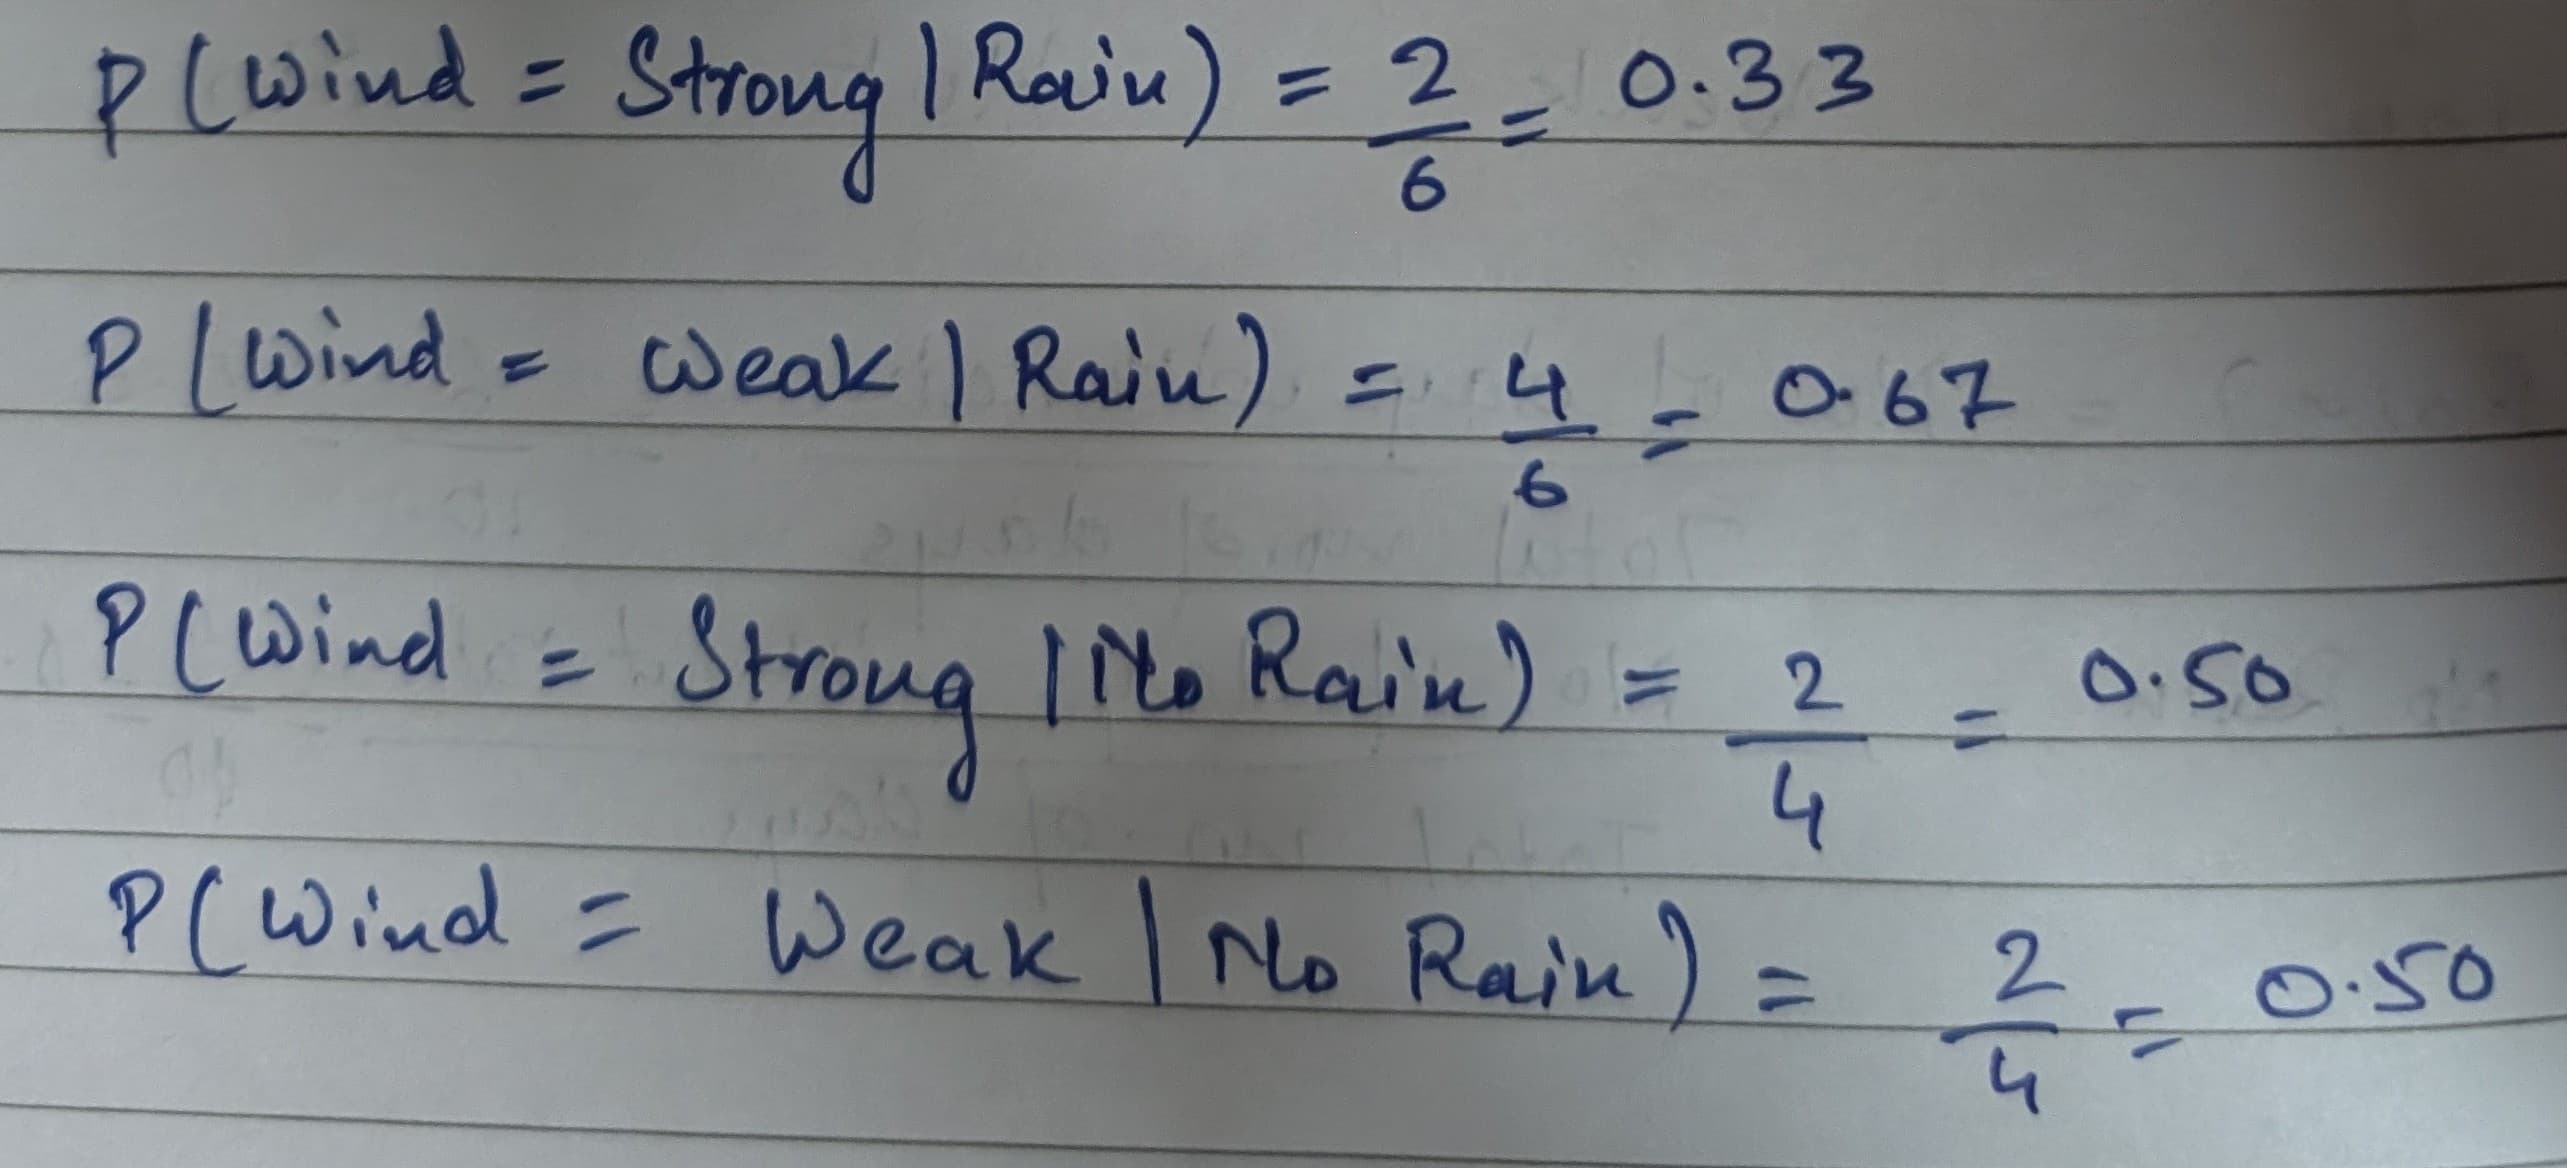 P(Wind = Strong | Rain) = 2/6 = 0.33
P(Wind = Weak | Rain) = 4/6 = 0.67
P(Wind = Strong | No Rain) = 2/4 = 0.50
P(Wind = Weak | No Rain) = 2/4 = 0.50